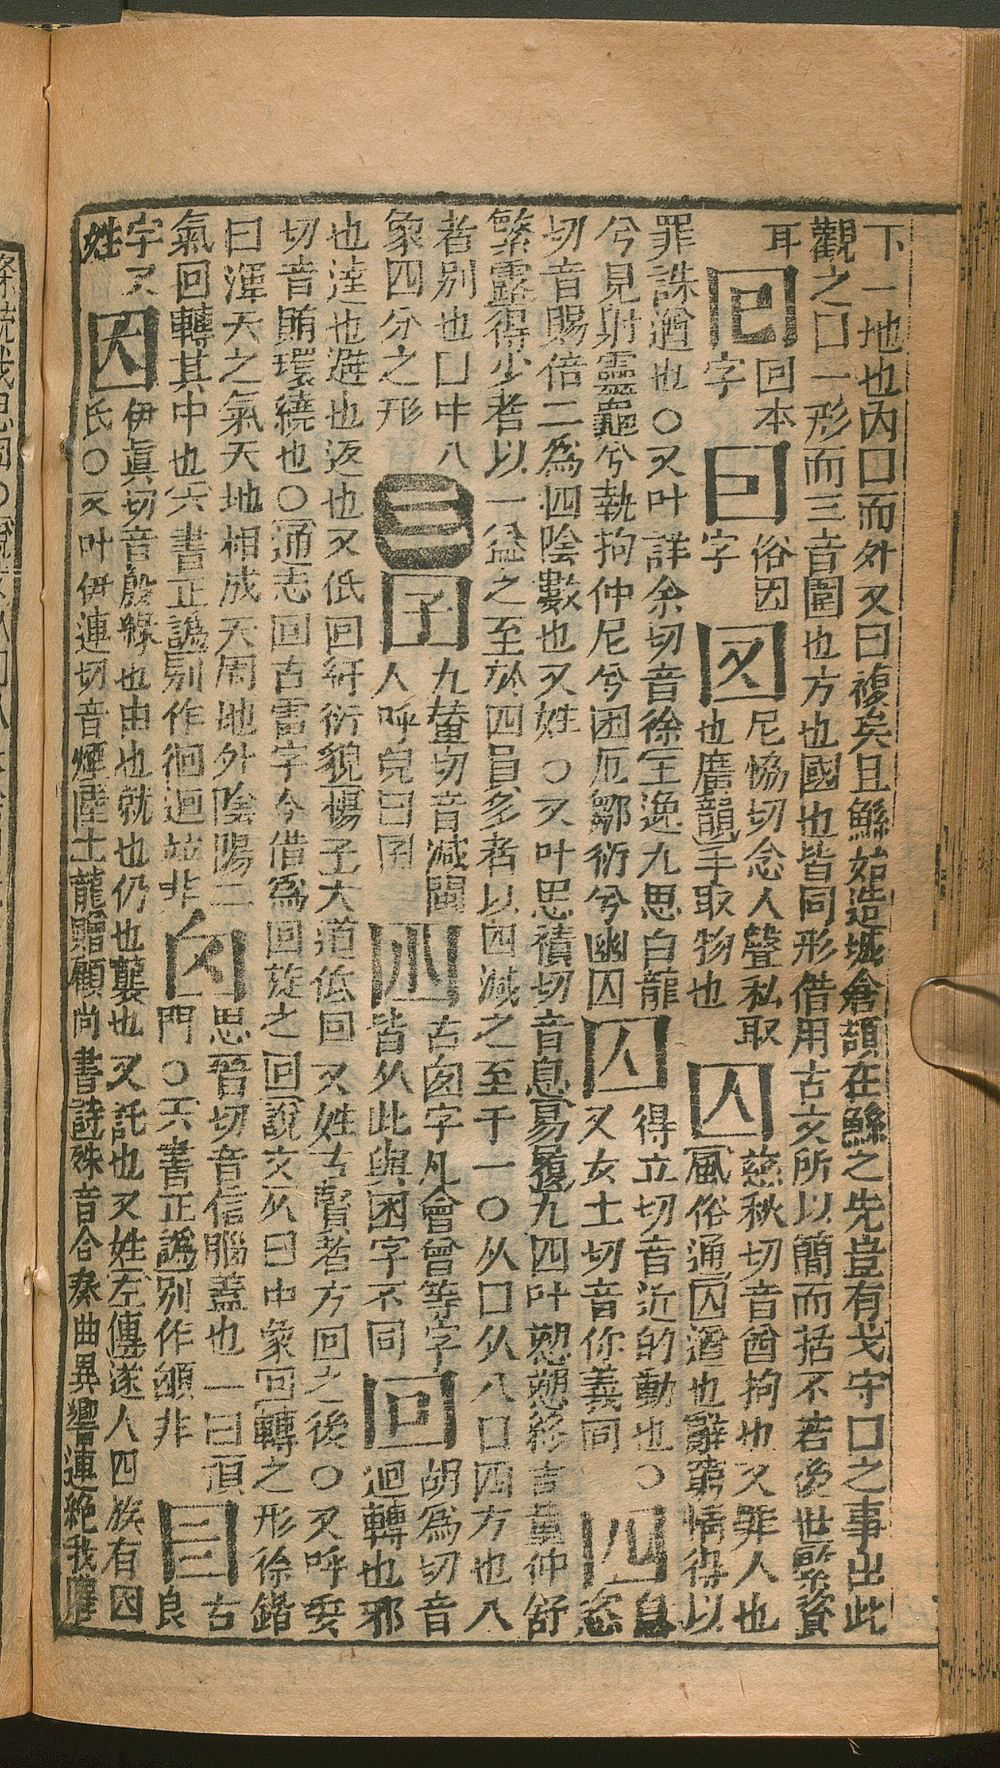 下一地也內口而外又曰複矣且鯀始造城倉頡在鯀之先豈有戈守口之事出此
觀之口一形而三音圍也方也國也皆同形借用古文所以簡而括不若後世緊資
耳
回
回本
字
囙
俗因
字
図
尼恊切念人聲私取
也廣韻手取物也
囚
慈秋切音酋拘也又罪人也
風俗通囚遒也辭窮情得以
罪誅遒也○又叶詳余切音徐王逸九思白龍
兮見射靈龜兮執拘仲尼兮困厄鄒衍兮幽囚
囜
得立切音近的動也○
又女士切音你義同
四
息
恣
切音賜倍二爲四陰數也又姓○又叶思積切音息易履九四叶愬愬終吉董仲舒
繁露得少者以一益之至於四員多者以四減之至于一○从口从八口四方也八
者別也口中八
象四分之形
亖
囝
九輦切音減閩
人呼兒曰囝
古囱字凡會曾等字
皆从此與囷字不同
回
胡爲切音
迴轉也邪
也違也避也返也又低回紆衍貌揚子大道低回又姓古賢者方回之後○又呼委
切音賄環繞也○通志回古雷字今借爲回旋之回說文从囗中象回轉之形徐鍇
曰渾天之氣天地相成天周地外陰陽二
氣回轉其中也六書正譌別作徊迴並非
囟
思晉切音信腦蓋也一曰頂
門○六書正譌別作顖非
古
良
字又
姓
因
伊眞切音殷緣也由也就也仍也襲也又託也又姓左傳遂人四族有因
氏○又叶伊連切音煙陸士龍贈顧尚書詩殊音合奏曲異響連絶我